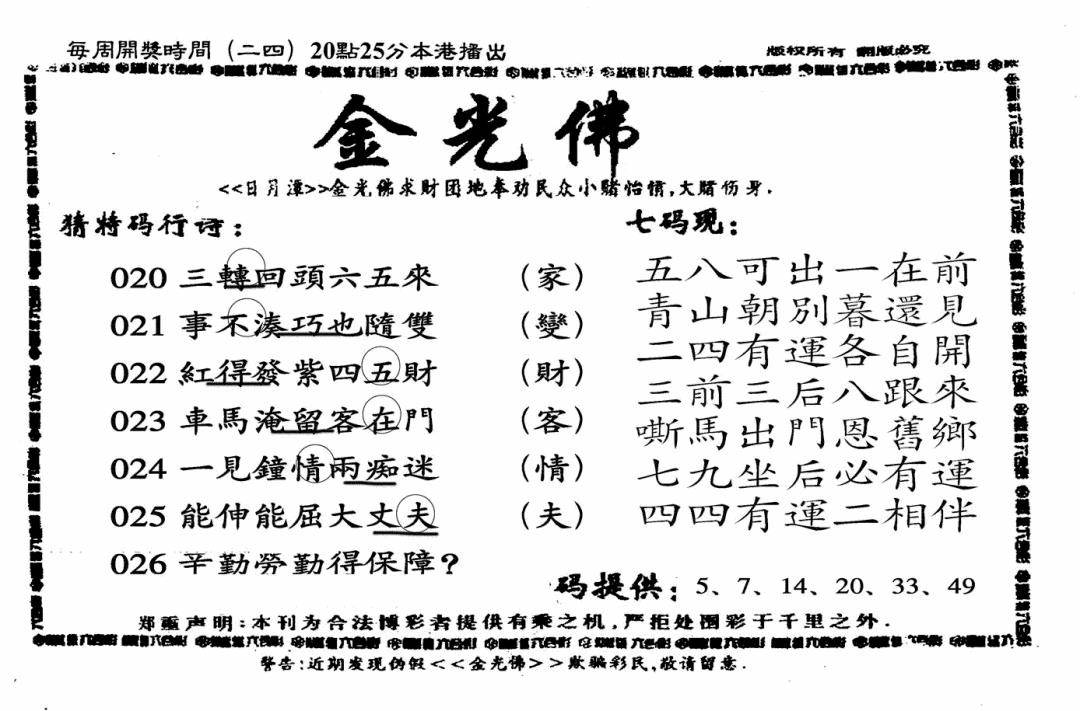 每周開獎時間（二四）20點25分本港播出
版权所有 翻版必究
金光佛
<<日月潭>>金光佛求財团地奉劝民众小赌怡情,大赌伤身.
猜特码行诗:
020 三轉回頭六五來 （家）
021 事不湊巧也隨雙 （變）
022 紅得發紫四五財 （財）
023 車馬淹留客在門 （客）
024 一見鐘情兩痴迷 （情）
025 能伸能屈大丈夫 （夫）
026 辛勤勞勤得保障?
七码现:
五八可出一在前
青山朝別暮還見
二四有運各自開
三前三后八跟來
嘶馬出門恩舊鄉
七九坐后必有運
四四有運二相伴
码提供: 5、7、14、20、33、49
郑重声明:本刊为合法博彩者提供有乘之机,严拒处围彩于千里之外.
警告:近期发现伪假<<金光佛>>欺骗彩民,敬请留意.